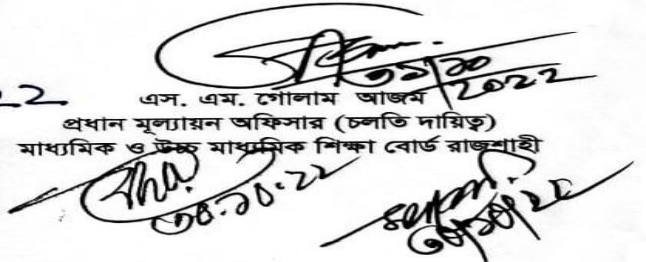 ৩১/১০
২০২২
২২
এস. এম. গোলাম আজম
প্রধান মূল্যায়ন অফিসার (চলতি দায়িত্ব)
মাধ্যমিক ও উচ্চ মাধ্যমিক শিক্ষা বোর্ড রাজশাহী
৩০.১০.২২